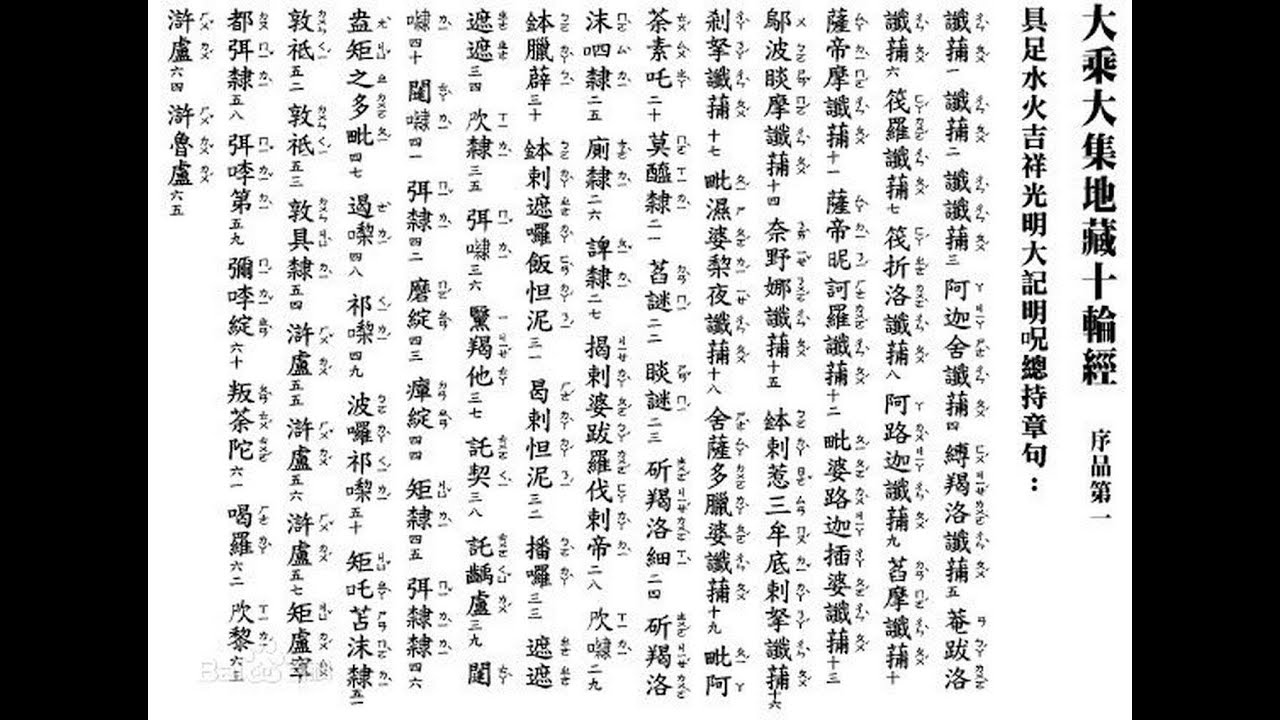 大乘大集地藏十輪經 序品第一
具足水火吉祥光明大記明呪總持章句：
讖蒱一 讖蒱二 讖讖蒱三 阿迦舍讖蒱四 縛羯洛讖蒱五 菴跋洛
讖蒱六 筏羅讖蒱七 筏折洛讖蒱八 阿路迦讖蒱九 萏摩讖蒱十
薩帝摩讖蒱十一 薩帝昵訶羅讖蒱十二 毗婆路迦插婆讖蒱十三
鄔波睒摩讖蒱十四 奈野娜讖蒱十五 鉢剌惹三牟底剌拏讖蒱十六
剎拏讖蒱十七 毗濕婆梨夜讖蒱十八 舍薩多臘婆讖蒱十九 毗阿
荼素吒二十 莫醯隸二一 萏謎二二 睒謎二三 斫羯洛細二四 斫羯洛
沬呬隸二五 廁隸二六 諀隸二七 揭剌婆跋羅伐剌帝二八 欥㘑二九
鉢臘薜三十 鉢剌遮囉飯怛泥三一 曷剌怛泥三二 播囉三三 遮遮
遮遮三四 欥隸三五 弭㘑三六 黳羯他三七 託契三八 託齲盧三九 闥
㘑四十 闥㘑四一 弭隸四二 磨綻四三 癉綻四四 矩隸四五 弭隸隸四六
盎矩之多毗四七 遏㗚四八 祁㗚四九 波囉祁㗚五十 矩吒苫沬隸五一
敦祇五二 敦祇五三 敦具隸五四 滸盧五五 滸盧五六 滸盧五七 矩盧窣
都弭隸五八 弭㖿第五九 彌㖿綻六十 叛荼陀六一 喝羅六二 欥黎六三
滸盧六四 滸魯盧六五